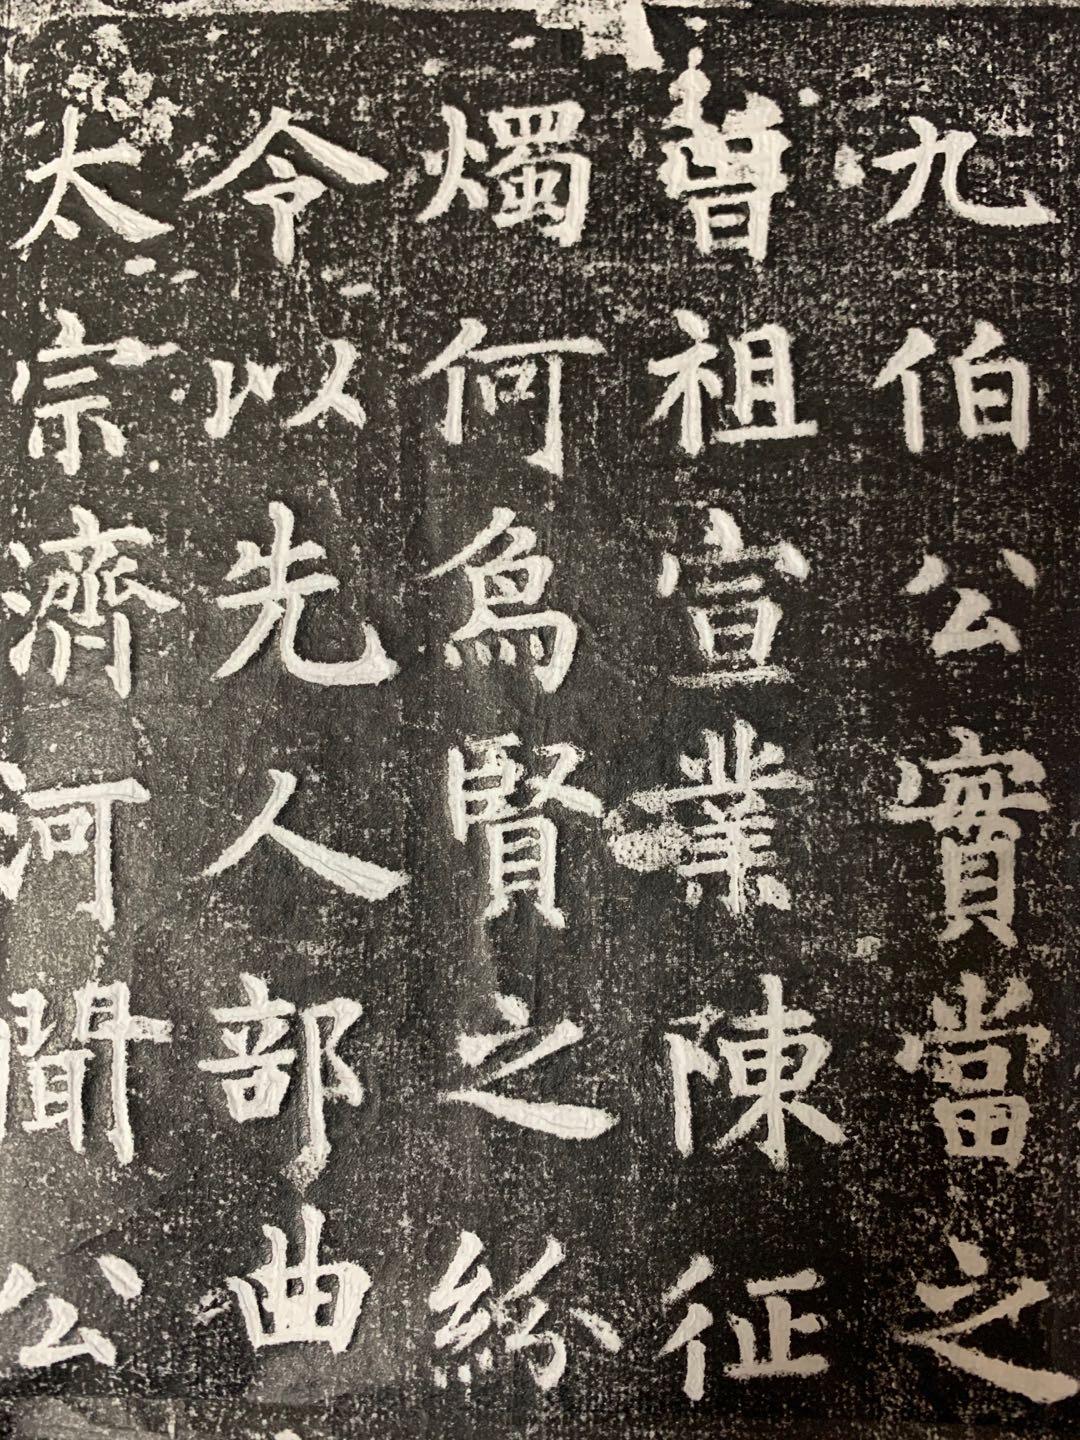 九伯公實當之
曾祖宣業陳征
燭何為賢之紛
令以先人部曲
太宗濟河聞公